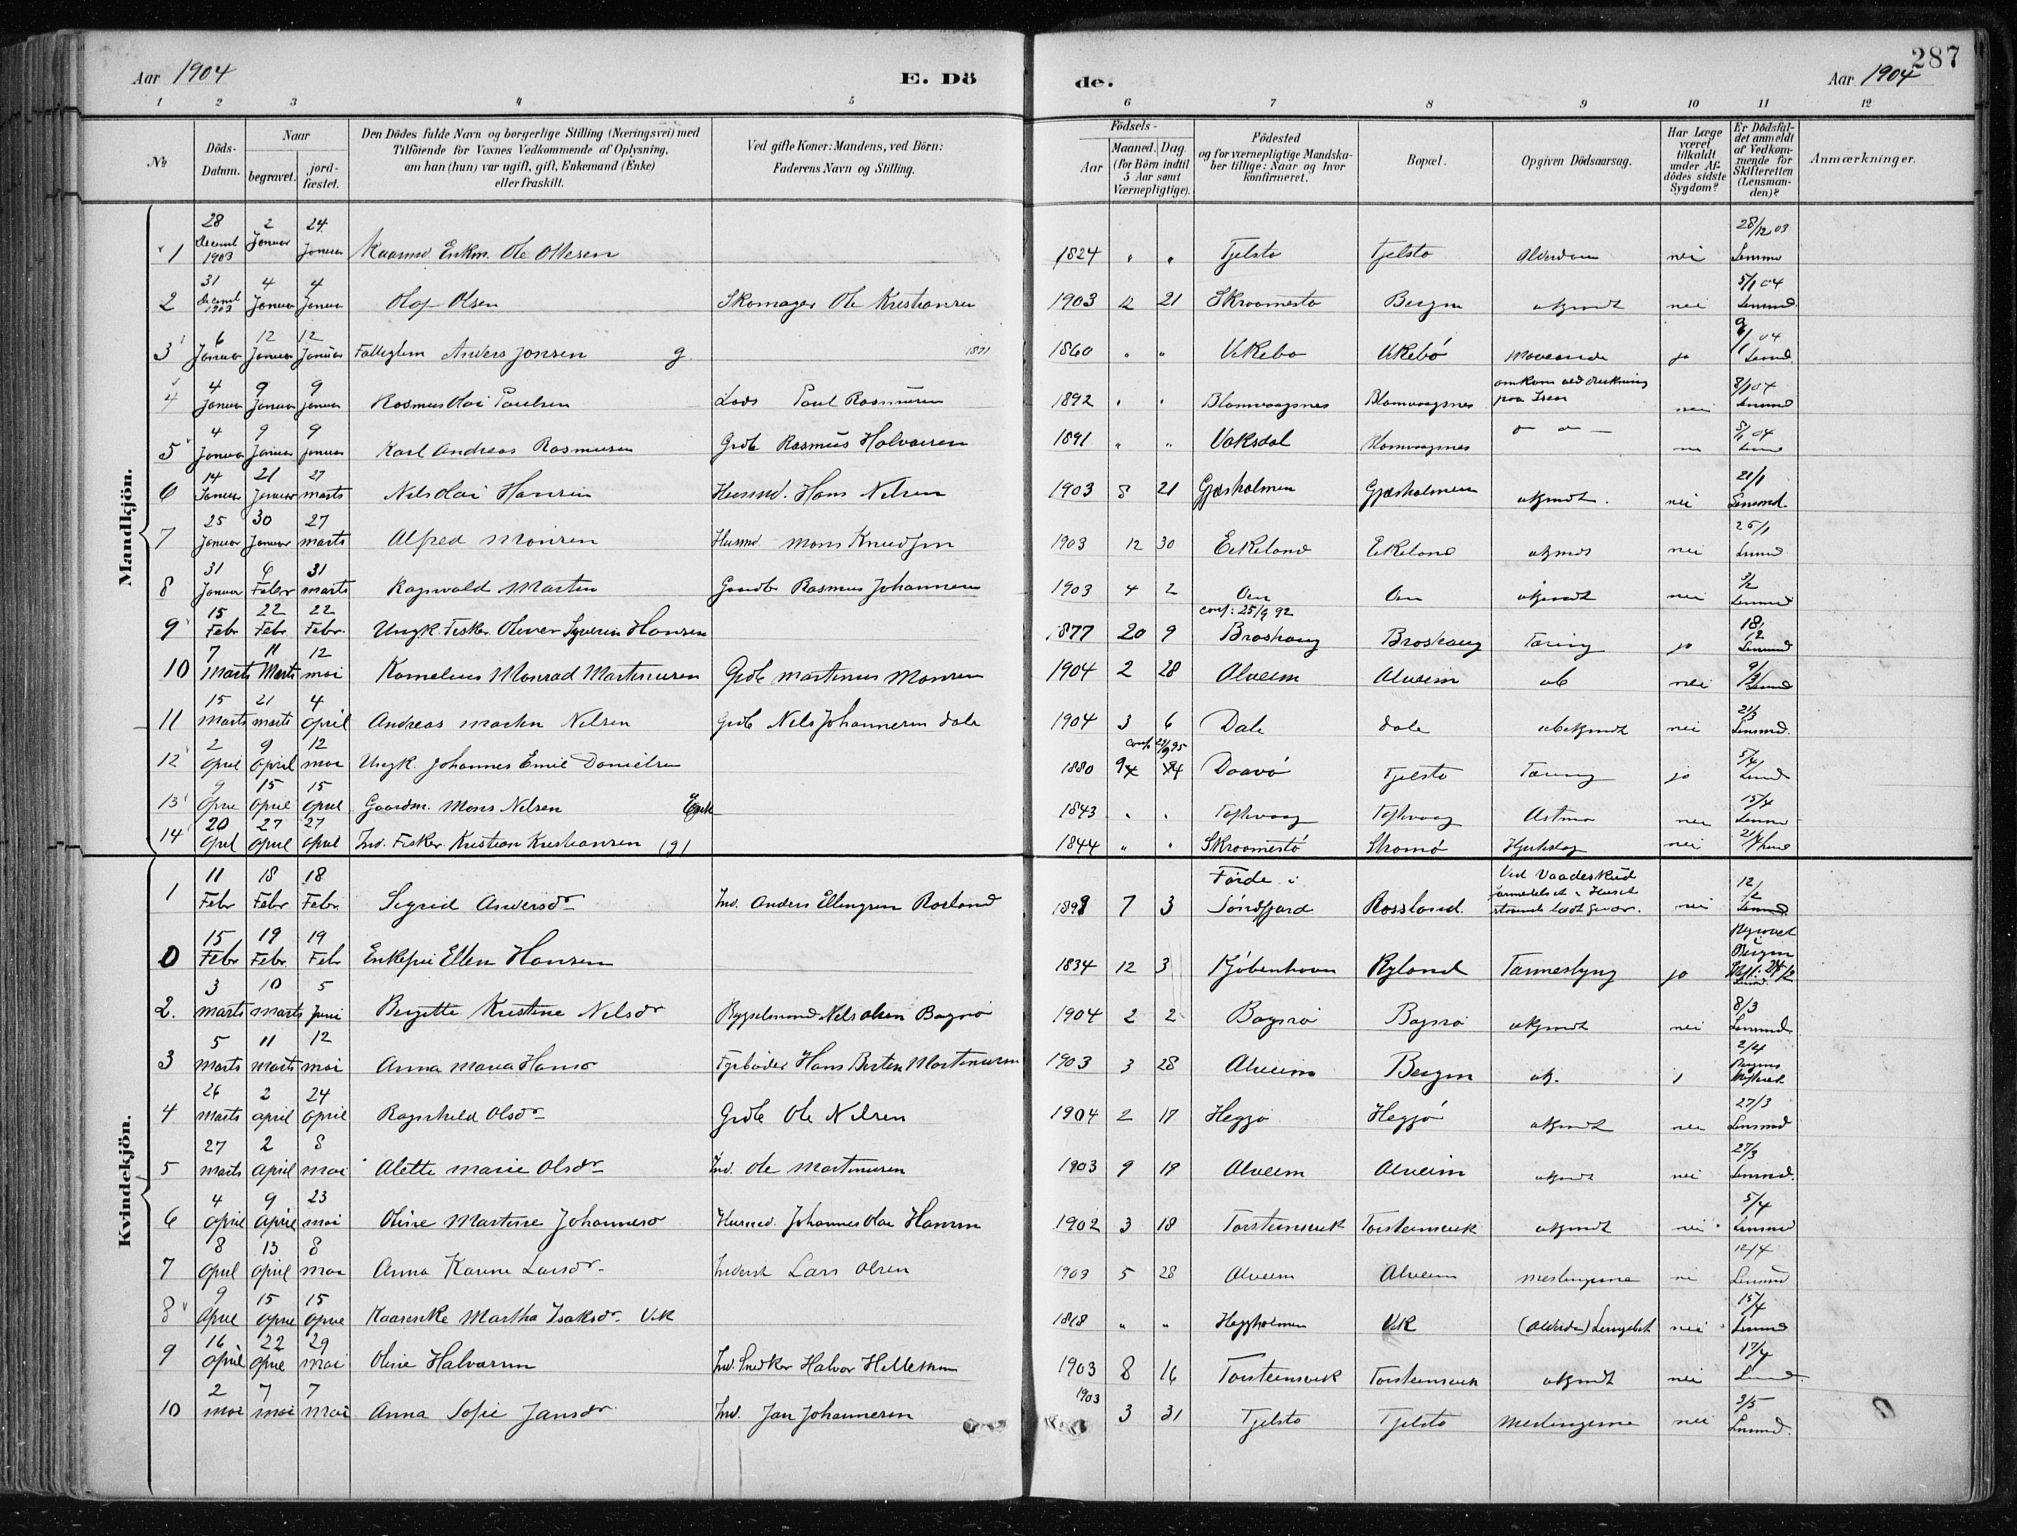 287
Aar 1904 E. Dö de. Aar 1904
1 2 3 4 5 6 7 8 9 10 11 12
No
Döds-Datum.
Naar
begravet.
jordfæstet.
Den Dödes fulde Navn og borgerlige Stilling (Næringsvei) med
Tilföiende for Voxnes Vedkommende af Oplysning,
om han (hun) var ugift, gift, Enkemand (Enke)
eller fraskilt.
Ved gifte Koner: Mandens, ved Börn:
Faderens Navn og Stilling.
Födsels-
Aar
Maaned. Dag.
(for Börn indtil
5 Aar samt
Værnepligtige).
Födested
og for værnepligtige Mandska-
ber tillige: Naar og hvor
konfirmeret.
Bopæl.
Opgiven Dödsaarsag.
Har Læge
været
tilkaldt
under Af-
dödes sidste
Sygdom?
Er Dödsfal-
det anmeldt
af Vedkom-
mende for
Skifteretten
(Lensman-
den)?
Anmærkninger.
Mandkjön.
1 28 Decemb 1903 2 Januar 24 Januar Kaarmd. Enkm. Ole Ottesen 1824 " " Tjelstø Tjelstø Alderdom nei 28/12 03 Lensmd
2 31 Decemb 1903 4 Januar 4 Januar Olaf Olsen Skomager Ole Kristiansen 1903 12 21 Skroamestø Bergen ukjendt nei 5/1 04 Lensmd.
3 6 Januar 12 Januar 12 Januar Fattiglem Anders Jonsen g. 1871 1860 " " Vikebø Vikebø Mavesaar ja 9/1 04 Lensmd.
4 4 Januar 9 Januar 9 Januar Rasmus Olai Paulsen Lods Paul Rasmusen 1892 " " Blomvaagnes Blomvaagnes omkom ved drukning paa Isen nei 8/1 04 Lensmd
5 4 Januar 9 Januar 9 Januar Karl Andreas Rasmusen Grdb Rasmus Halvorsen 1891 " " Vaksdal Blomvaagnes nei 8/1 04 Lensmd
6 14 Januar 21 Januar 27 Marts Nils Olai Hansen Husmd. Hans Nilsen 1903 8 21 Gjæsholmen Gjæsholmen ukjendt. nei 21/1 Lensmd.
7 25 Januar 30 Januar 27 Marts Alfred Monsen Husmd. Mons Knudsen 1903 12 30 Eikeland Eikeland ukjendt nei 25/1 Lensmd
8 31 Januar 6 Febr 31 Marts Ragnvald Martin Gaardbr Rasmus Johannesen 1903 4 2 Oen Oen ukjendt nei 3/2 Lensmd
9 15 Febr 22 Febr 22 Febr. Ungk. Fisker Oliver Syverin Hansen 1877 20 9 conf: 25/9 92 Broshaug Broshaug Tæring ja 18/2 Lensmd
10 7 Marts 11 Marts 12 Mai Kornelius Monrad Martinusen Grdb Martinus Monsen 1904 2 28 Alveim Alveim uk nei 9/3 Lensmd
11 15 Marts 21 Marts 4 April Andreas Martin Nilsen Grdb Nils Johannesen Dale 1904 3 6 Dale Dale ubekjendt nei 21/3 Lensmd.
12 2 April 9 April 12 Mai Ungk. Johannes Emil Danielsen 1880 conf. 29/9 95 Daavø Tjelstø Tæring ja 5/4 Lensmd
13 9 April 15 April 15 April Gaardm. Mons Nilsen Enk 1843 " " Toftevaag Toftevaag Astma nei 15/4 Lensmd
14 20 April 27 April 27 April Ind. Fisker Kristian Kristiansen (g) 1844 " " Skroamestø Stromø Hjerteslag nei
Kvindekjön.
1 11 Febr 18 Febr 18 Febr. Sigrid Andersdr Ind. Anders Ellingsen Rosland 1898 7 3 Førde i Søndfjord Rossland. Ved Vaadeskud staaende ladt Gevær. nei 12/2 Lensmd
0 15 Febr 19 Febr. 19 Febr Enkefru Ellen Hansen 1834 12 3 Kjøbenhavn Ryland Tarmeslyng ja Bergen
2. 3 Marts 10 Marts 5 Juni Bergitte Kristine Nilsdr Bygselmand Nils Olsen Bagnø 1904 2 2 Bagnø Bagnø ukjendt nei 8/3 Lensmd.
3 5 Marts 11 Marts 12 Mai Anna Maria Hansdr Fyrbøder Hans Berten Martinusen 1903 3 28 Alveim Bergen uk. 2/4
4 26 Marts 2 April 24 April Ragnhild Olsdr Grdb Ole Nilsen 1904 2 17 Hegjø Hegjø ukjendt nei 27/3 Lensmd
5 27 Marts 2 April 8 Mai Alette Marie Olsdr Ind. Ole Martinusen 1903 9 19 Alveim Alveim ukjendt nei 27/3 Lensmd.
6 4 April 9 April 23 Mai Oline Martine Johannesdr Husmd. Johannes Olai Hansen 1902 3 18 Torsteinsvik Torsteinsvik ukjendt nei 5/4 Lensmd
7 8 April 13 April 8 Mai Anna Karine Larsdr Inderst Lars Olsen 1903 5 28 Alveim Alveim Meslingerne nei 12/4 Lensmd
8 9 April 15 April 15 April Kaarenke Martha Isaksdr Vik 1818 " " Heggholmen Vik (Alderdom) nei 15/4 Lensmd
9 16 April 22 April 29 Mai Oline Halvorsen Ind. Snedker Halvor 1903 8 16 Torsteinsvik Torsteinsvik ukjendt nei 17/4 Lensmd
10 2 Mai 7 Mai 7 Mai Anna Sofie Jansdr Ind. Jan Johannesen 1903 3 31 Tjelstø Tjelstø Meslingerne nei 3/5 Lensmd.